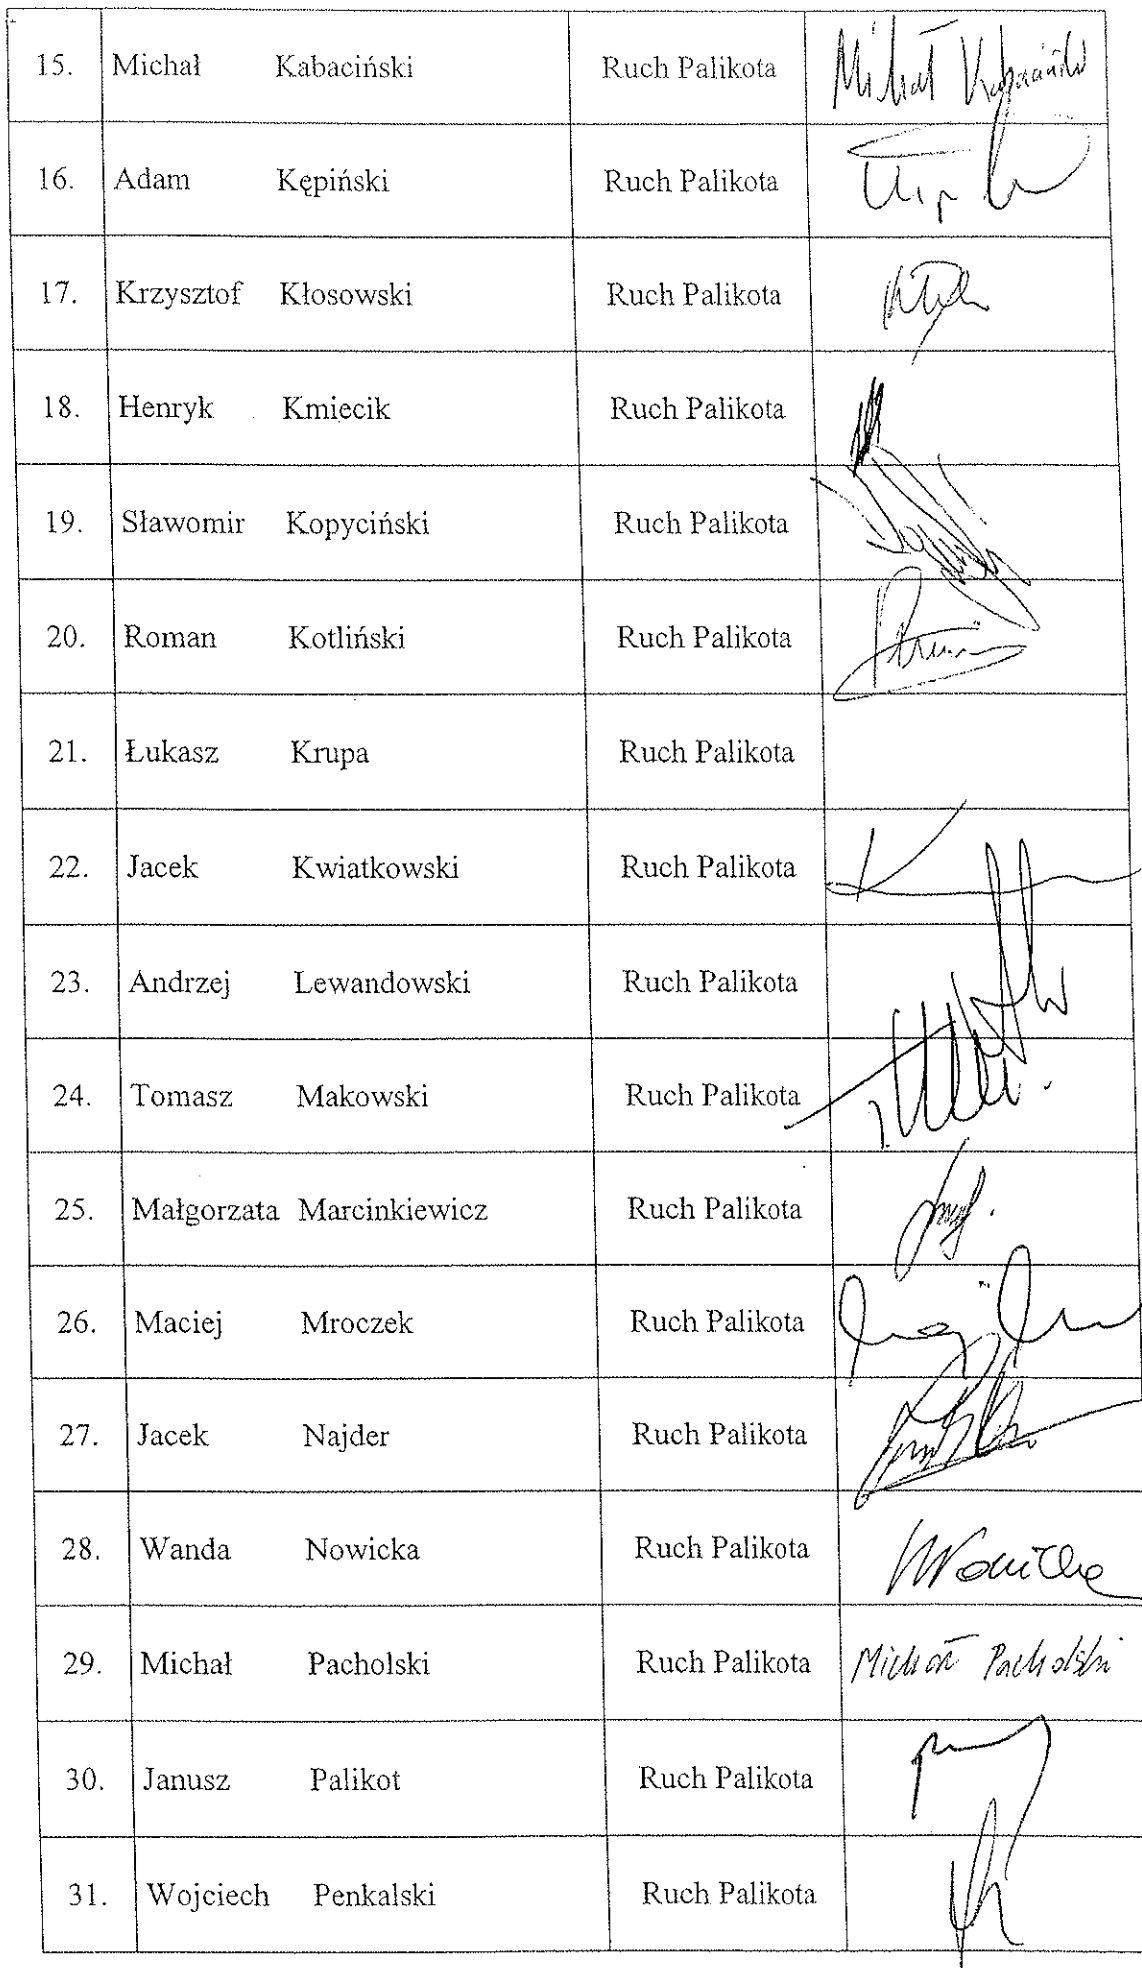 15. Michał Kabaciński Ruch Palikota Michał Kabaciński
16. Adam Kępiński Ruch Palikota
17. Krzysztof Kłosowski Ruch Palikota
18. Henryk Kmiecik Ruch Palikota
19. Sławomir Kopyciński Ruch Palikota
20. Roman Kotliński Ruch Palikota
21. Łukasz Krupa Ruch Palikota
22. Jacek Kwiatkowski Ruch Palikota
23. Andrzej Lewandowski Ruch Palikota
24. Tomasz Makowski Ruch Palikota
25. Małgorzata Marcinkiewicz Ruch Palikota
26. Maciej Mroczek Ruch Palikota
27. Jacek Najder Ruch Palikota
28. Wanda Nowicka Ruch Palikota WNowicka
29. Michał Pacholski Ruch Palikota Michał Pacholski
30. Janusz Palikot Ruch Palikota
31. Wojciech Penkalski Ruch Palikota